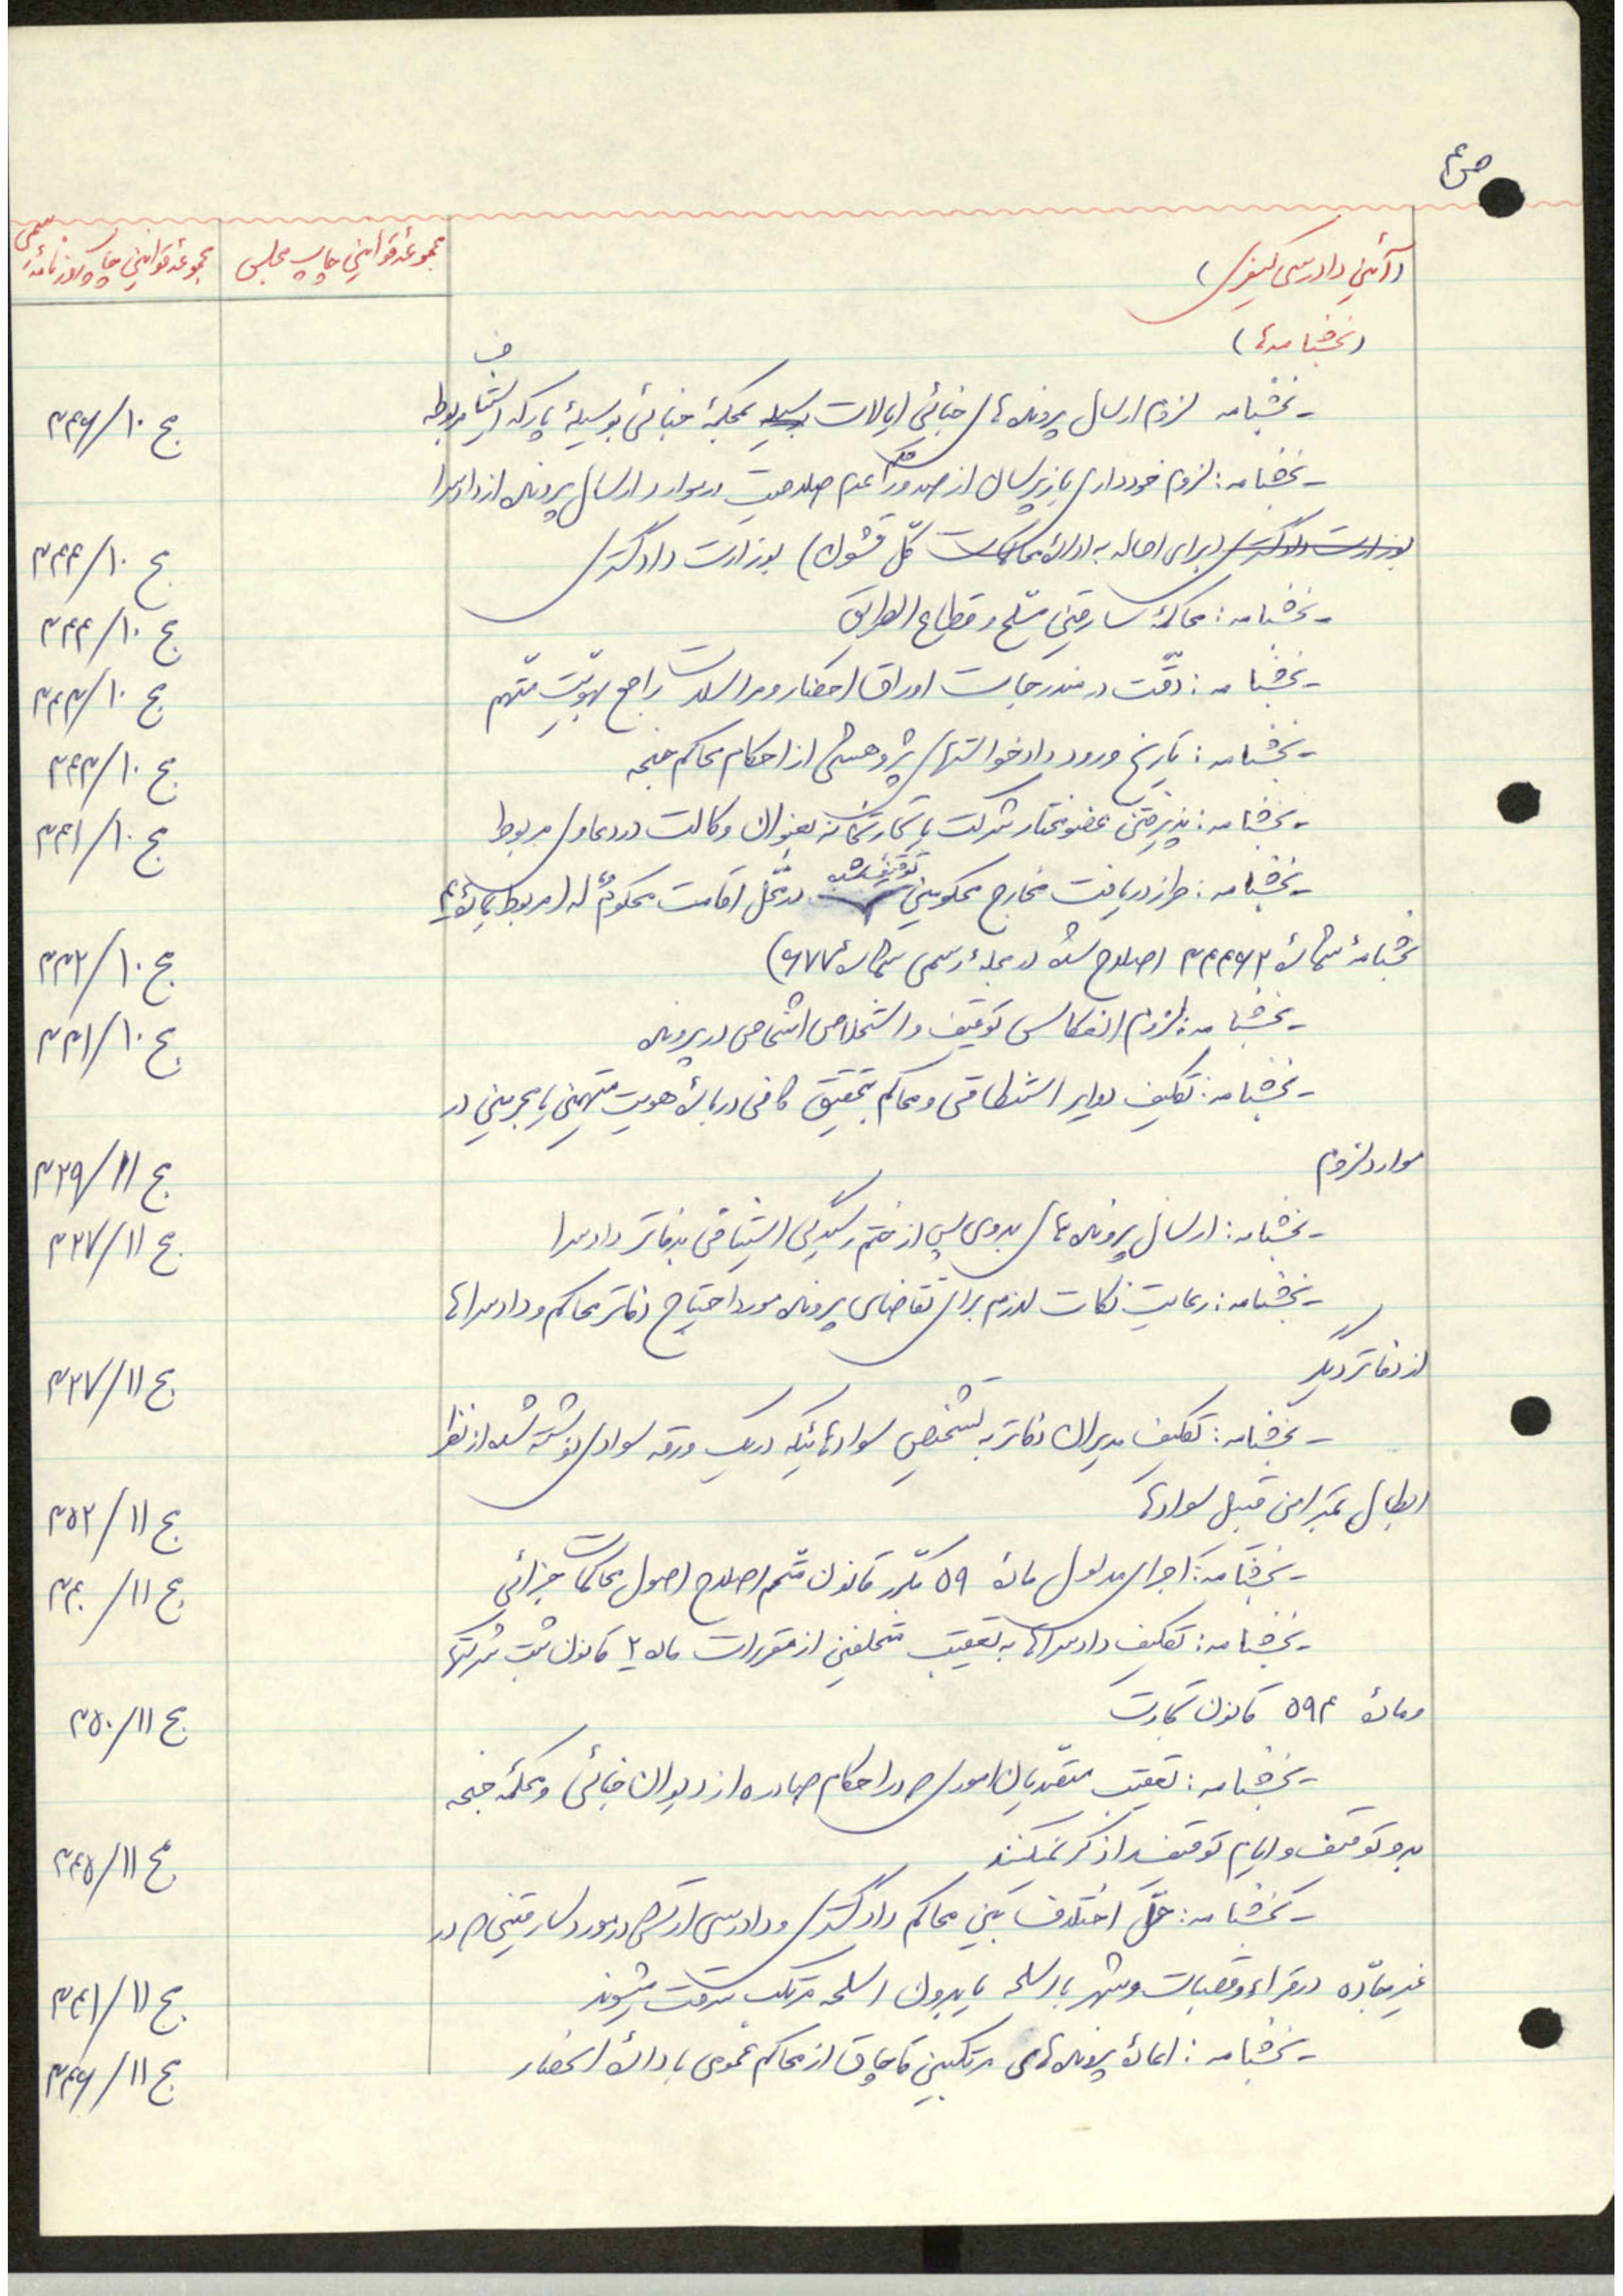 ص ۴
(آئین دادرسی کیفری)
مجموعهٔ قوانین چاپ مجلس
مجموعهٔ قوانین چاپ روزنامهٔ رسمی
(بخشنامه‌ها)
- بخشنامه لزوم ارسال پرونده‌های جنائی ایالات بوسیله بمحکمهٔ جنائی بوسیلهٔ پارکه استیناف مربوطه ج ۱۰/۳۴۶
- بخشنامه: لزوم خودداری بازپرسان از صدور قرار عدم صلاحیت در موارد ارسال پرونده از دادسرا
بوزارت دادگستری (برای احاله به ادارهٔ محاکمات کل قشون) بوزارت دادگستری ج ۱۰/۳۴۴
- بخشنامه: محاکمهٔ سارقین مسلح و قطاع الطریق ج ۱۰/۳۴۴
- بخشنامه: دقّت در مندرجات اوراق احضار و مراسلات راجع بهویّت متّهم ج ۱۰/۳۴۳
- بخشنامه: تاریخ ورود دادخواستهای پژوهشی از احکام محاکم جنحه ج ۱۰/۳۴۳
- بخشنامه: پذیرفتن عضو مختار شرکت یا تجارتخانه بعنوان وکالت در دعاوی مربوط ج ۱۰/۳۴۱
- بخشنامه: طرز دریافت مخارج محکومین توقیف شده در محلّ اقامت محکومٌ له (مربوط بمادهٔ ۴
بخشنامهٔ شمارهٔ ۳۴۴۶۲ اصلاح شده در مجلهٔ رسمی شمارهٔ ۶۷۷) ج ۱۰/۳۳۲
- بخشنامه: لزوم انعکاس توقیف و استخلاص اشخاص در پرونده ج ۱۰/۳۳۱
- بخشنامه: تکلیف دوایر استنطاقی و محاکم بتحقیق کافی دربارهٔ هویت متهمین یا مجرمین در
موارد لزوم ج ۱۱/۳۲۹
- بخشنامه: ارسال پرونده‌های بدوی پس از ختم رسیدگی استینافی بدفاتر دادسرا ج ۱۱/۳۲۷
- بخشنامه: رعایت نکات لازم برای تقاضای پرونده مورد احتیاج دفاتر محاکم و دادسراها
از دفاتر دیگر ج ۱۱/۳۲۷
- بخشنامه: تکلیف مدیران دفاتر به تشخیص سوادهائیکه در یک ورقه سوادی نوشته شده از نظر
ابطال تمبر این قبیل سوادها ج ۱۱/۳۵۲
- بخشنامه: اجرای مدلول مادهٔ ۵۹ مکّرر قانون متّمم اصلاح اصول محاکمات جزائی ج ۱۱/۳۴۰
- بخشنامه: تکلیف دادسراها به تعقیب متخلفین از مقررات ماده ۲ قانون ثبت شرکتها
و مادهٔ ۵۹۴ قانون تجارت ج ۱۱/۳۵۰
- بخشنامه: تعقیب متصّدیان اموری که در احکام صادره از دیوان جنائی و محکمهٔ جنحه
بدو توقیف و ایام توقیف را ذکر نمیکنند ج ۱۱/۳۴۵
- بخشنامه: حّل اختلاف بین محاکم دادگستری و دادرسی ارتش در مورد سارقینی که در
غیر جاّده در قراء و قصبات و شهر با اسلحه یا بدون اسلحه مرتکب سرقت میشوند ج ۱۱/۳۴۱
- بخشنامه: اعادهٔ پرونده‌های مرتکبین قاچاق از محاکم عمومی بادارهٔ انحصار ج ۱۱/۳۳۶